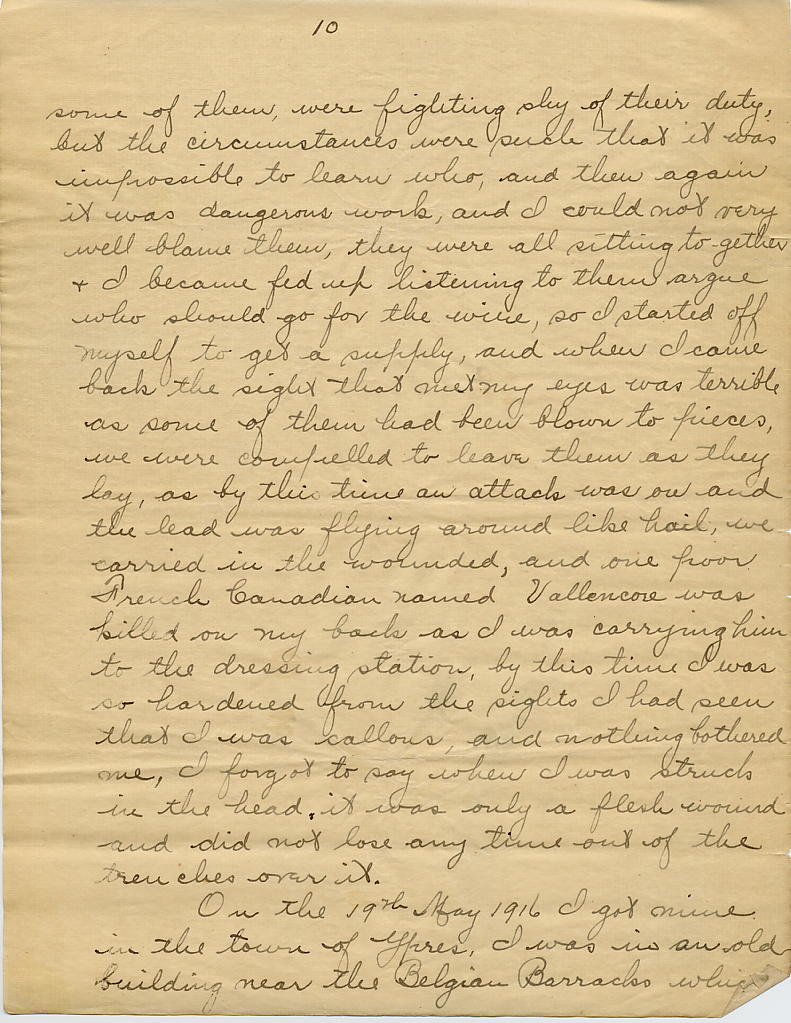 10
some of them, were fighting shy of their duty,
but the circumstances were such that it was
impossible to learn who, and then again
it was dangerous work, and I could not very
well blame them, they were all sitting to-gether
+ I became fed up listening to them argue
who should go for the wire, so I started off
myself to get a supply, and when I came
back the sight that met my eyes was terrible
as some of them had been blown to pieces,
we were compelled to leave them as they
lay, as by this time an attack was on and
the lead was flying around like hail, we
carried in the wounded, and one poor
French Canadian named Vallencore was
killed on my back as I was carrying him
to the dressing station, by this time I was
so hardened from the sights I had seen
that I was callous, and nothing bothered
me, I forgot to say when I was struck
in the head, it was only a flesh wound
and did not lose any time out of the
trenches over it.
On the 19th May 1916 I got mine
in the town of Ypres, I was in an old
building near the Belgian Barracks which